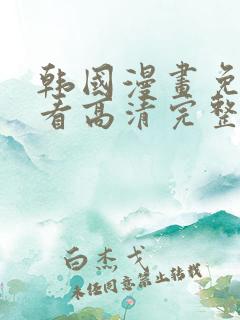 韩國漫畫免
看高清完整
白杰戈
未经同意禁止转载